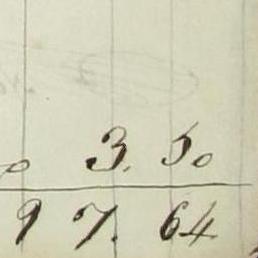 0 3. 50
97. 64